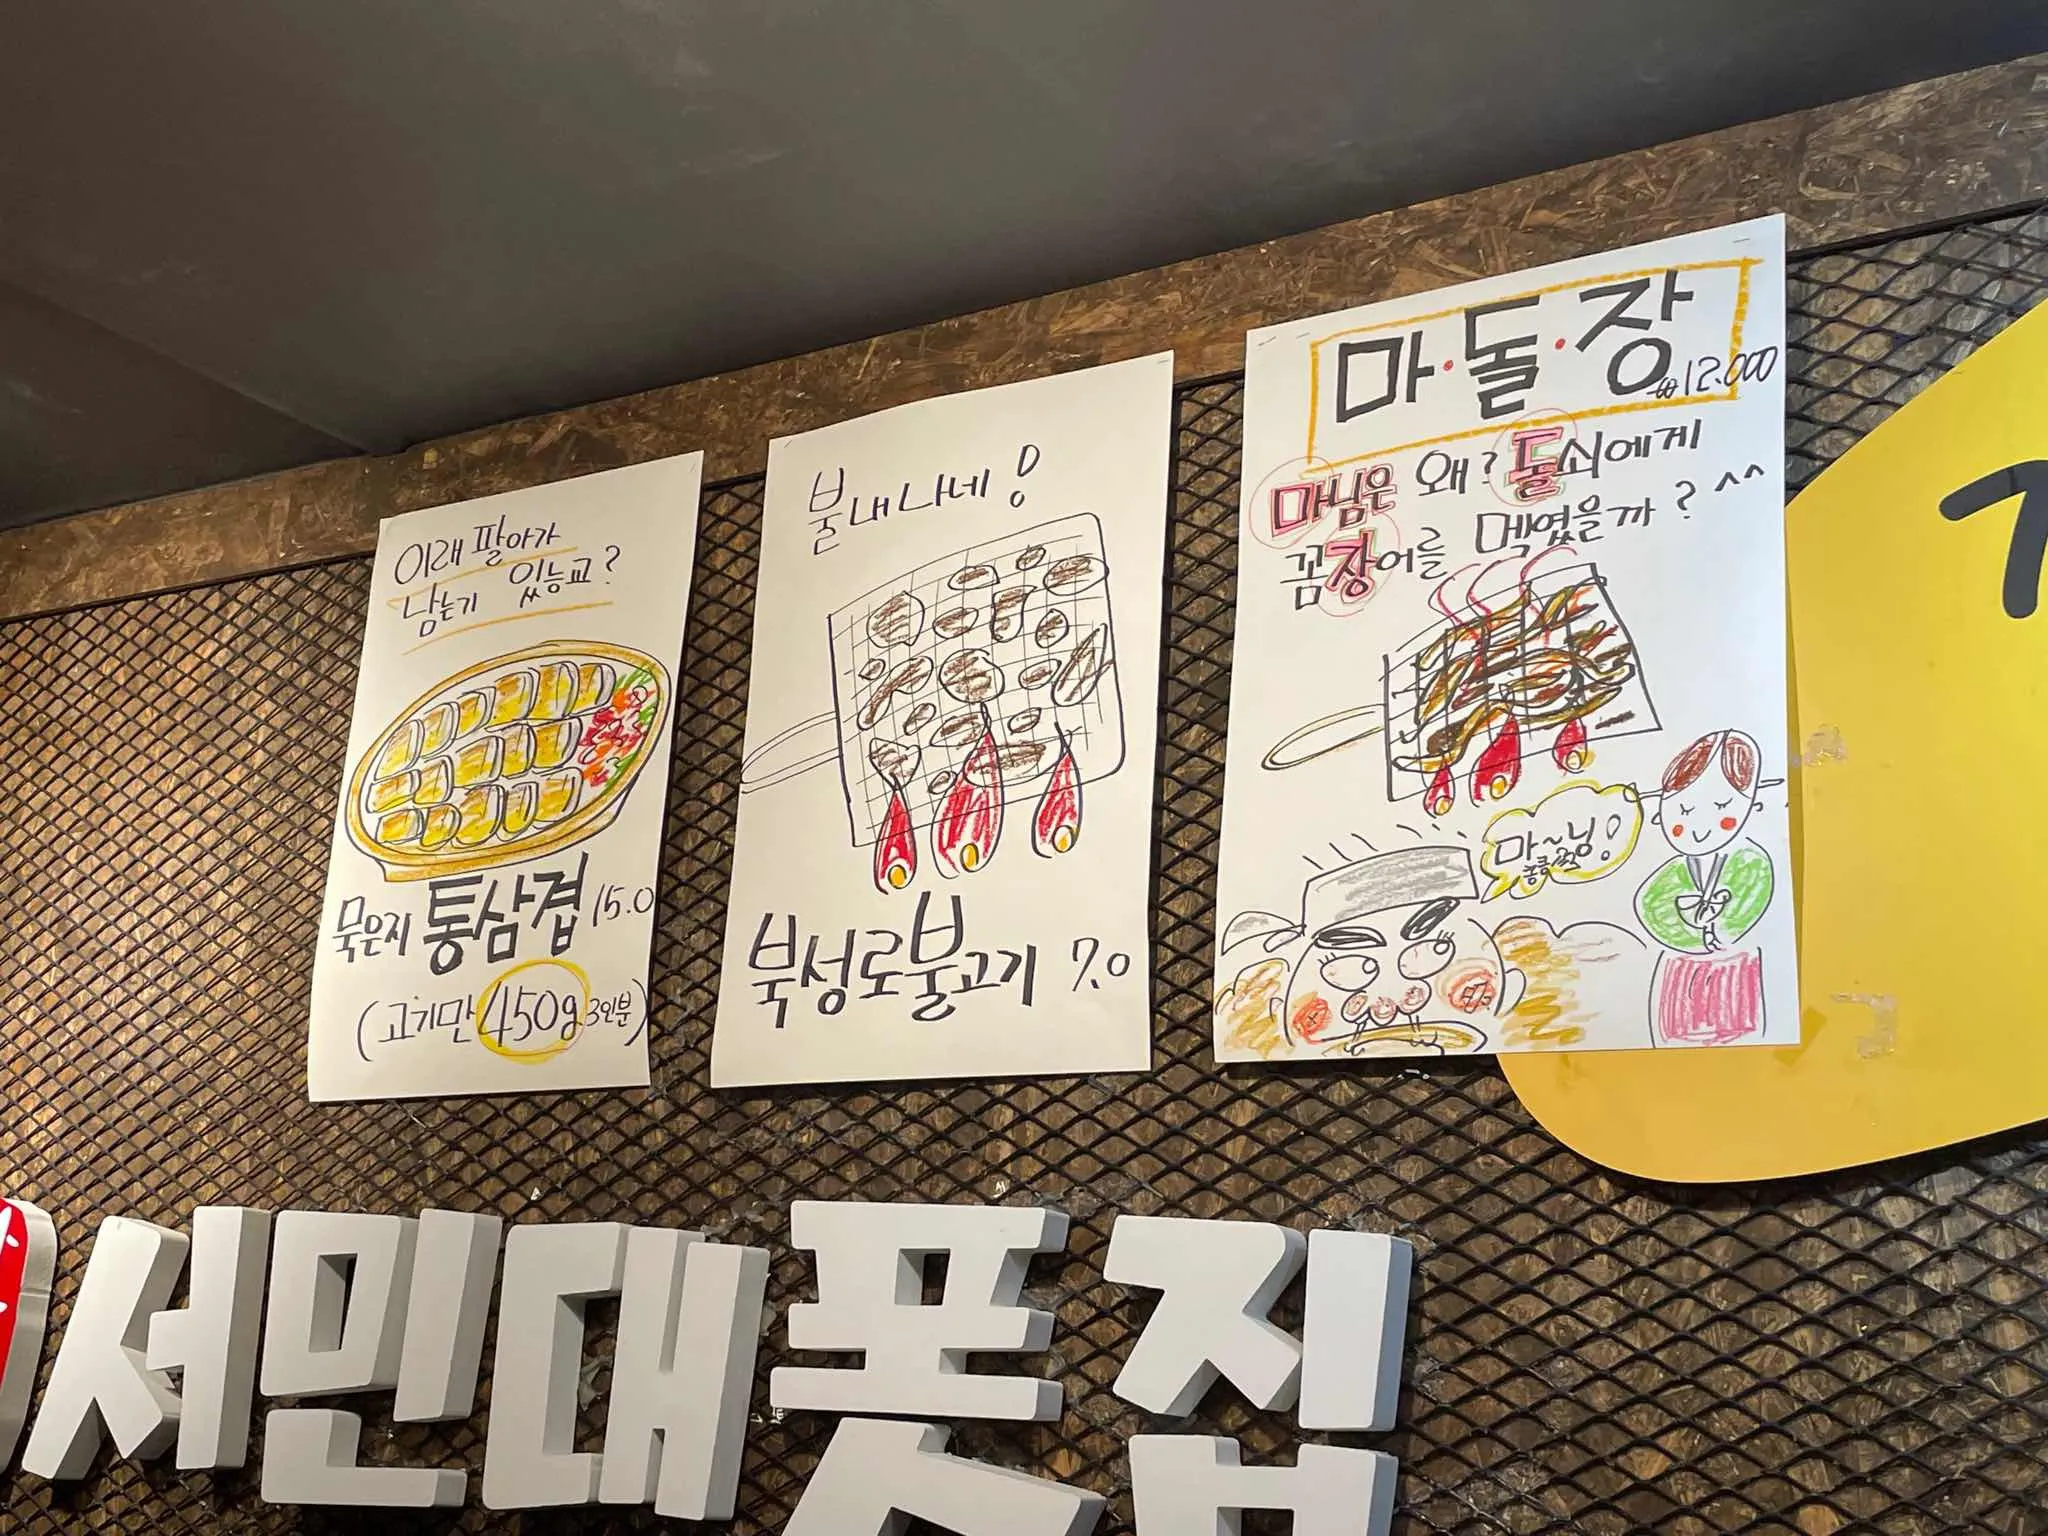 이래 팔아가
남는기 있능교?
묵은지 통삼겹 15.0
(고기만 450g 3인분)
불내나네!
북성로불고기 7.0
마·돌·장
₩12.000
마님은 왜? 돌쇠에게
꼼장어를 멕였을까? ^^
마~님!
서민대폿집